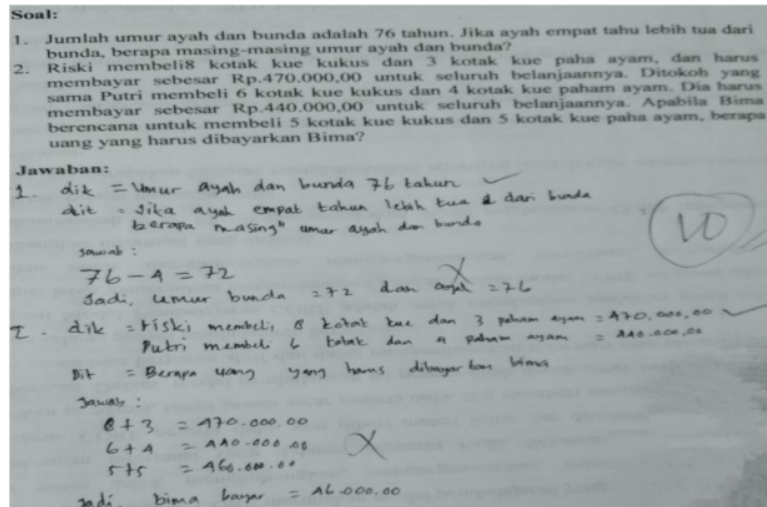 Soal:
1. Jumlah umur ayah dan bunda adalah 76 tahun. Jika ayah empat tahu lebih tua dari
bunda, berapa masing-masing umur ayah dan bunda?
2. Riski membeli8 kotak kue kukus dan 3 kotak kue paha ayam, dan harus
membayar sebesar Rp.470.000,00 untuk seluruh belanjaannya. Ditokoh yang
sama Putri membeli 6 kotak kue kukus dan 4 kotak kue paham ayam. Dia harus
membayar sebesar Rp.440.000,00 untuk seluruh belanjaannya. Apabila Bima
berencana untuk membeli 5 kotak kue kukus dan 5 kotak kue paha ayam, berapa
uang yang harus dibayarkan Bima?
Jawaban:
1. dik = Umur ayah dan bunda 76 tahun
dit = Jika ayah empat tahun lebih tua dari bunda
berapa masing" umur ayah dan bunda
10
Jawab :
76 - 4 = 72
Jadi, umur bunda = 72 dan ayah = 76
2. dik = riski membeli 8 kotak kue dan 3 paham ayam = 470.000,00
Putri membeli 6 kotak dan 4 paham ayam = 440.000,00
Dit = Berapa uang yang harus dibayar kan bima
Jawab :
8 + 3 = 470.000.00
6 + 4 = 440.000.00
5+5 = 460.000.00
Jadi, bima bayar = 46.000,00